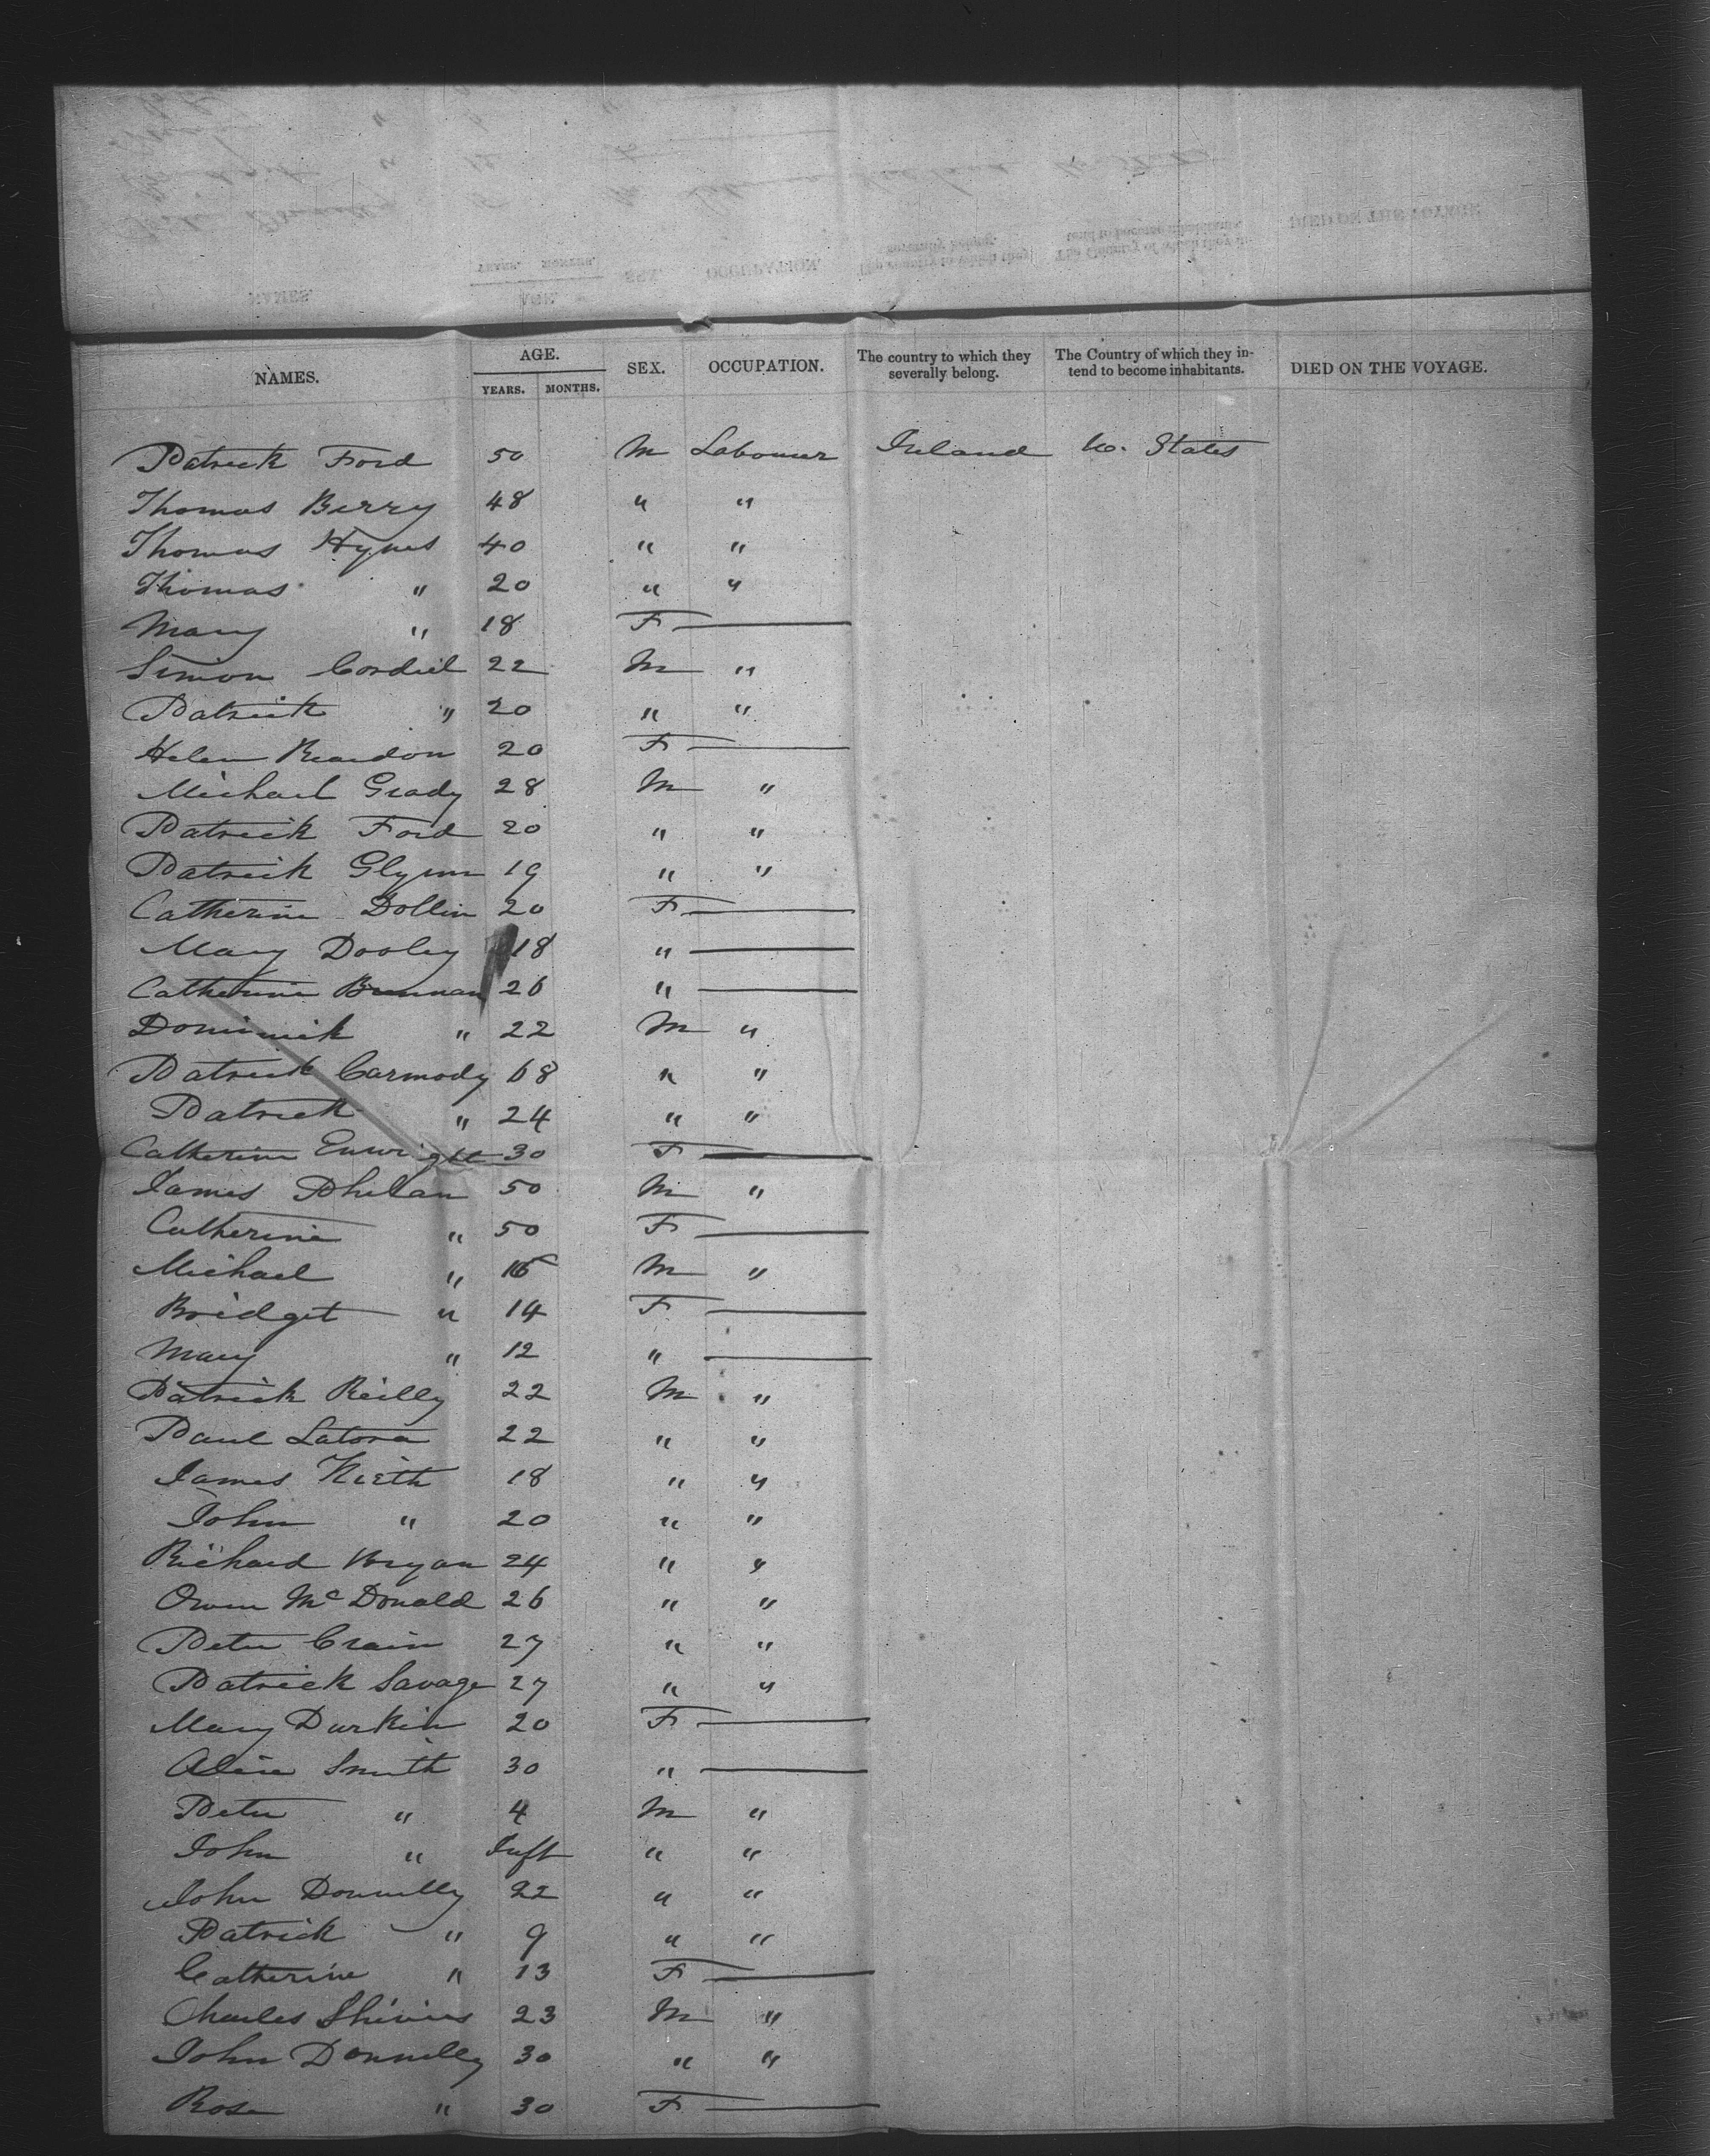 NAMES. AGE. SEX. OCCUPATION. The country to which they severally belong. The Country of which they intend to become inhabitants. DIED ON THE VOYAGE.
YEARS. MONTHS.
Patrick Ford 50 M Labourer Ireland U. States
Thomas Berry 48 " "
Thomas Hynes 40 " "
Thomas " 20 " "
Mary " 18 F —
Simon Cordiel 22 M "
Patrick " 20 " "
Helen Reardon 20 F —
Michael Grady 28 M "
Patrick Ford 20 " "
Patrick Glynn 19 " "
Catherine Dollin 20 F —
Mary Dooley 18 " —
Catherine Brennan 26 " —
Dominick " 22 M "
Patrick Carmody 68 " "
Patrick " 24 " "
Catherine Enwright 30 F —
James Phelan 50 M "
Catherine " 50 F —
Michael " 16 M "
Bridget " 14 F —
Mary " 12 " —
Patrick Reilly 22 M "
Paul Latora 22 " "
James Kieth 18 " "
John " 20 " "
Richard Bryan 24 " "
Owen McDonald 26 " "
Peter Crain 27 " "
Patrick Savage 27 " "
Mary Durkin 20 F —
Alice Smith 30 " —
Peter " 4 M "
John " Inft " "
John Donnelly 22 " "
Patrick " 9 " "
Catherine " 13 F —
Charles 23 M "
John Donnelly 30 " "
Rose " 30 F —